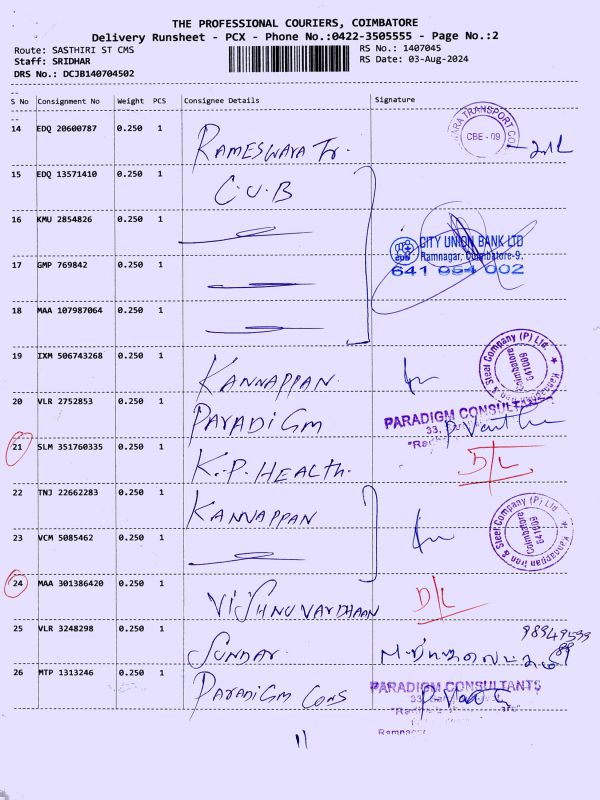 THE PROFESSIONAL COURIERS, COIMBATORE
Delivery Runsheet - PCX - Phone No.:0422-3505555 - Page No.:2
Route: SASTHIRI ST CMS
RS No.: 1407045
Staff: SRIDHAR
RS Date: 03-Aug-2024
DRS No.: DCJB140704502
S No Consignment No Weight PCS Consignee Details Signature
14 EDQ 20600787 0.250 1 RAMESWARA Tr.
CBE - 09
15 EDQ 13571410 0.250 1 C.U.B
16 KMU 2854826 0.250 1
CITY UNION BANK LTD
Ramnagar, Coimbatore-9.
641 054 002
17 GMP 769842 0.250 1
18 MAA 107987064 0.250 1
19 IXM 506743268 0.250 1 KANNAPPAN.
Kannappan Iron & Steel Company (P) Ltd.
Coimbatore
641009
20 VLR 2752853 0.250 1 PARADIGM
PARADIGM CONSULTANTS
33,
21 SLM 351760335 0.250 1 K.P. HEALTH. D/L
22 TNJ 22662283 0.250 1 KANNAPPAN
Kannappan Iron & Steel Company (P) Ltd.
Coimbatore
641009
23 VCM 5085462 0.250 1
24 MAA 301386420 0.250 1 VISHNUVARDHAAN D/L
25 VLR 3248298 0.250 1 SUNDAR.
26 MTP 1313246 0.250 1 PARADIGM CONS
PARADIGM CONSULTANTS
33,
Ramnagar
11